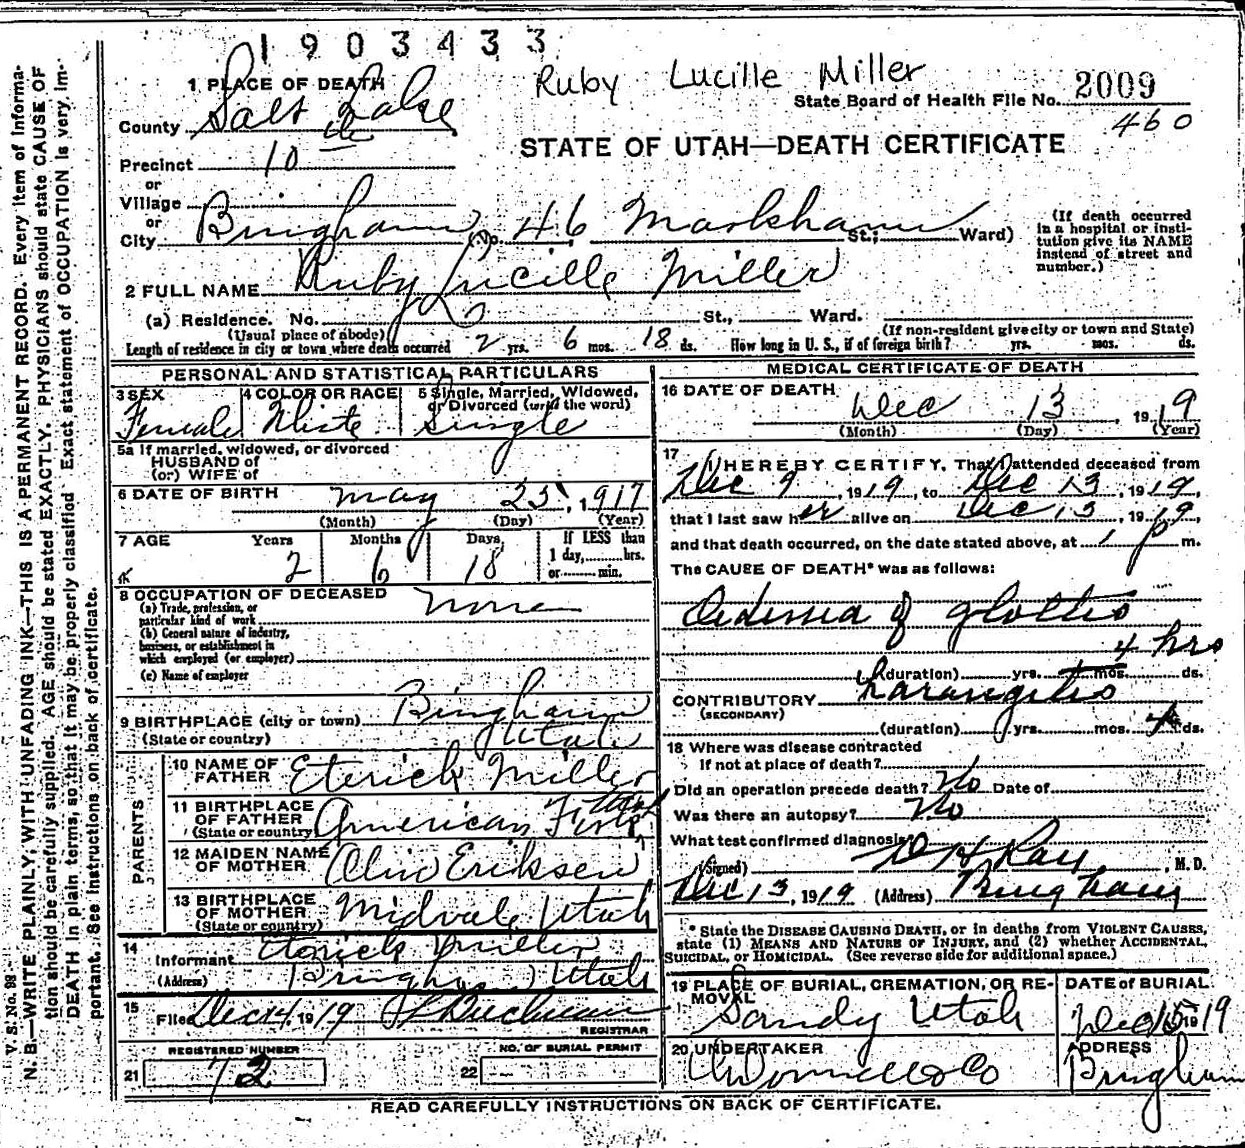 1903433
Ruby Lucille Miller
1 PLACE OF DEATH
State Board of Health File No. 2009
460
County Salt Lake
STATE OF UTAH—DEATH CERTIFICATE
Precinct 10
or
Village
or
City Bingham (No. 46 Markham St.; Ward)
(If death occurred in a hospital or insti-
tution give its NAME
instead of street and
number.)
2 FULL NAME Ruby Lucille Miller
(a) Residence. No. St., Ward.
(Usual place of abode) (If non-resident give city or town and State)
Length of residence in city or town where death occurred 2 yrs. 6 mos. 18 ds. How long in U. S., if of foreign birth? yrs. mos. ds.
PERSONAL AND STATISTICAL PARTICULARS
3 SEX Female
4 COLOR OR RACE White
5 Single, Married, Widowed,
or Divorced (write the word)
Single
5a If married, widowed, or divorced
HUSBAND of
(or) WIFE of
6 DATE OF BIRTH May 25, 1917
(Month) (Day) (Year)
7 AGE Years Months Days If LESS than
1 day, hrs.
or min.
2 6 18
8 OCCUPATION OF DECEASED none
(a) Trade, profession, or
particular kind of work
(b) General nature of industry,
business, or establishment in
which employed (or employer)
(c) Name of employer
9 BIRTHPLACE (city or town) Bingham
(State or country) Utah
PARENTS
10 NAME OF
FATHER Eterick Miller
11 BIRTHPLACE
OF FATHER
(State or country) American Fork, Utah
12 MAIDEN NAME
OF MOTHER Olive Eriksen
13 BIRTHPLACE
OF MOTHER
(State or country) Midvale Utah
14
Informant Eterick Miller
(Address) Bingham Utah
15
Filed Dec 14, 1919 Buchman
REGISTRAR
REGISTERED NUMBER
21 72
NO. OF BURIAL PERMIT
22 —
MEDICAL CERTIFICATE OF DEATH
16 DATE OF DEATH
Dec 13 1919
(Month) (Day) (Year)
17
I HEREBY CERTIFY, That I attended deceased from
Dec 9, 1919, to Dec 13, 1919,
that I last saw her alive on Dec 13, 1919,
and that death occurred, on the date stated above, at 1 p m.
The CAUSE OF DEATH* was as follows:
Oedema of glottis
4 hrs
(duration) yrs. mos. ds.
CONTRIBUTORY Larangitis
(SECONDARY)
(duration) yrs. mos. 4 ds.
18 Where was disease contracted
If not at place of death?
Did an operation precede death? No Date of
Was there an autopsy? No
What test confirmed diagnosis?
(Signed) D H Ray, M. D.
Dec 13, 1919 (Address) Bingham
* State the DISEASE CAUSING DEATH, or in deaths from VIOLENT CAUSES,
state (1) MEANS AND NATURE OF INJURY, and (2) whether ACCIDENTAL,
SUICIDAL, or HOMICIDAL. (See reverse side for additional space.)
19 PLACE OF BURIAL, CREMATION, OR RE-
MOVAL
Sandy Utah
DATE OF BURIAL
Dec 15 1919
20 UNDERTAKER
O'Donnell & Co
ADDRESS
Bingham
READ CAREFULLY INSTRUCTIONS ON BACK OF CERTIFICATE.
V. S. No. 98
N. B—WRITE PLAINLY, WITH UNFADING INK—THIS IS A PERMANENT RECORD. Every item of informa-
tion should be carefully supplied. AGE should be stated EXACTLY. PHYSICIANS should state CAUSE OF
DEATH in plain terms, so that it may be properly classified. Exact statement of OCCUPATION is very im-
portant. See instructions on back of certificate.